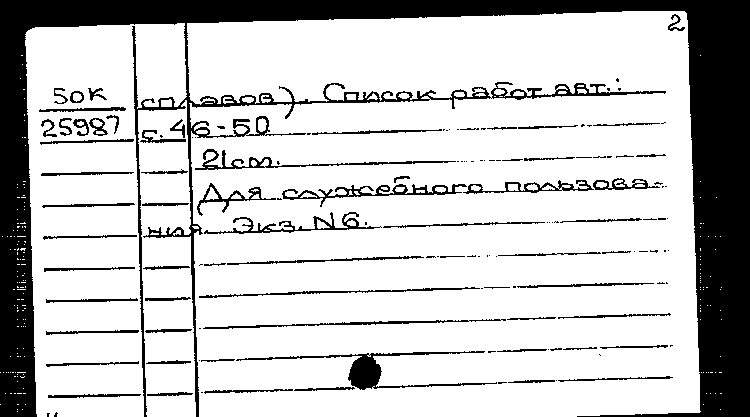 2
50К сплавов). Список работ авт.:
25987 с. 46-50
21см.
Для служебного пользова-
ния. Экз. N6.